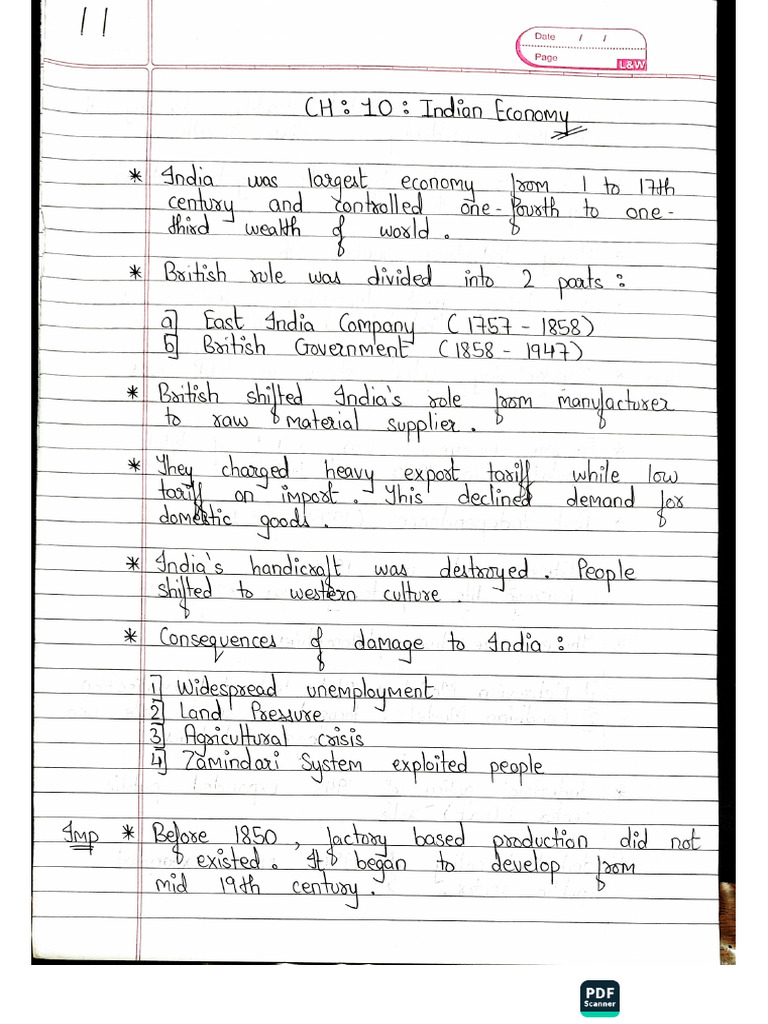 11
Date / /
Page
L&W
CH : 10 : Indian Economy
* India was largest economy from 1 to 17th
century and controlled one-fourth to one-
third wealth of world.
* British rule was divided into 2 parts :
a] East India Company (1757 - 1858)
b] British Government (1858 - 1947)
* British shifted India's role from manufacturer
to raw material supplier.
* They charged heavy export tariff while low
tariff on import. This declined demand for
domestic goods.
* India's handicraft was destroyed. People
shifted to western culture.
* Consequences of damage to India :
1] Widespread unemployment
2] Land Pressure
3] Agricultural crisis
4] Zamindari System exploited people
Imp * Before 1850, factory based production did not
existed. It began to develop from
mid 19th century.
PDF
Scanner